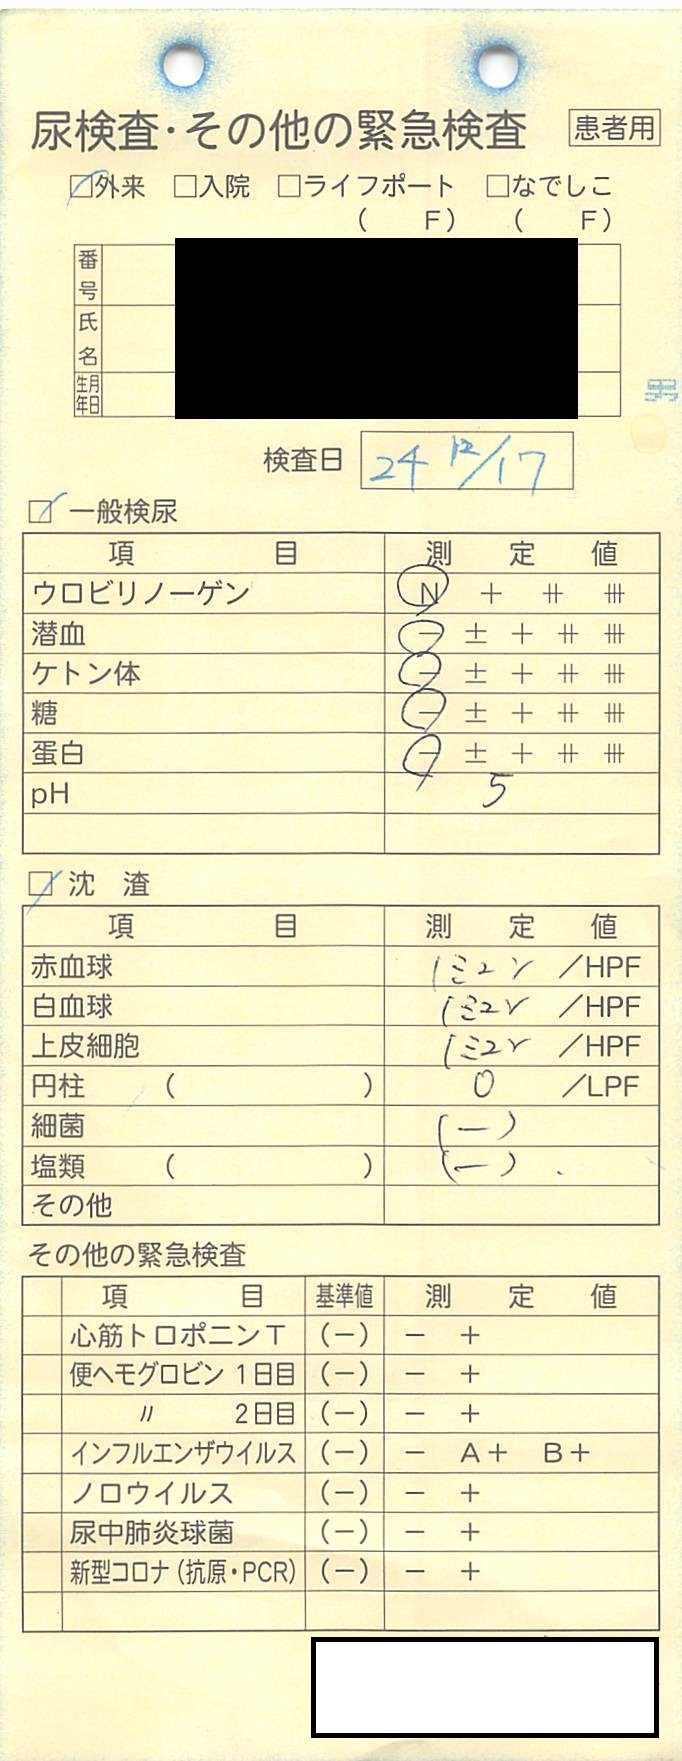 尿検査・その他の緊急検査 患者用
☑外来 □入院 □ライフポート □なでしこ
( F) ( F)
番号
氏名
生年月日
男
検査日 24 12/17
☑ 一般検尿
項目 測定値
ウロビリノーゲン N + ⧺ ⧻
潜血 - ± + ⧺ ⧻
ケトン体 - ± + ⧺ ⧻
糖 - ± + ⧺ ⧻
蛋白 - ± + ⧺ ⧻
pH 5
☑ 沈渣
項目 測定値
赤血球 /HPF
白血球 /HPF
上皮細胞 /HPF
円柱 ( ) 0 /LPF
細菌 (-)
塩類 ( ) (-)
その他
その他の緊急検査
項目 基準値 測定値
心筋トロポニンT (-) - +
便ヘモグロビン 1日目 (-) - +
〃 2日目 (-) - +
インフルエンザウイルス (-) - A+ B+
ノロウイルス (-) - +
尿中肺炎球菌 (-) - +
新型コロナ(抗原・PCR) (-) - +